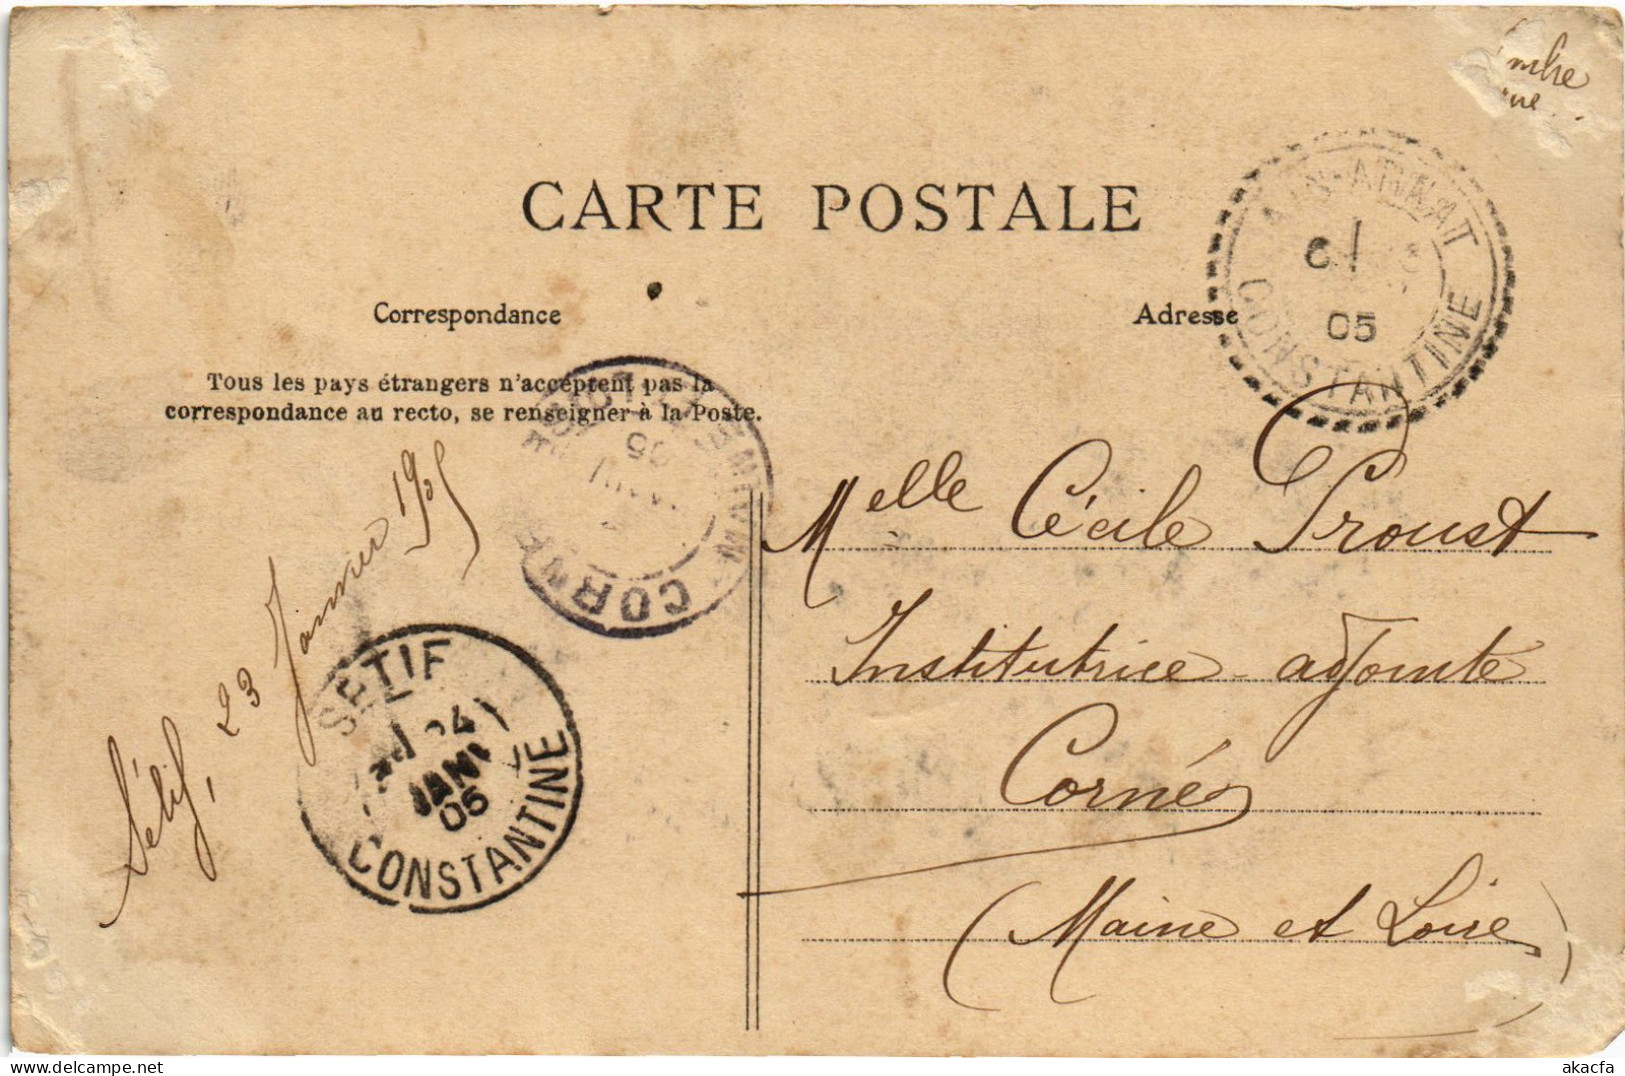 CARTE POSTALE
AIN-ABNAT
05
CONSTANTINE
Correspondance
Adresse
Tous les pays étrangers n'acceptent pas la
correspondance au recto, se renseigner à la Poste.
Sétif, 23 Janvier 1905
CORN
SETIF
24
JANV
05
CONSTANTINE
Melle Cécile Proust
Institutrice adjointe
Corné
(Maine et Loire)
akacfa